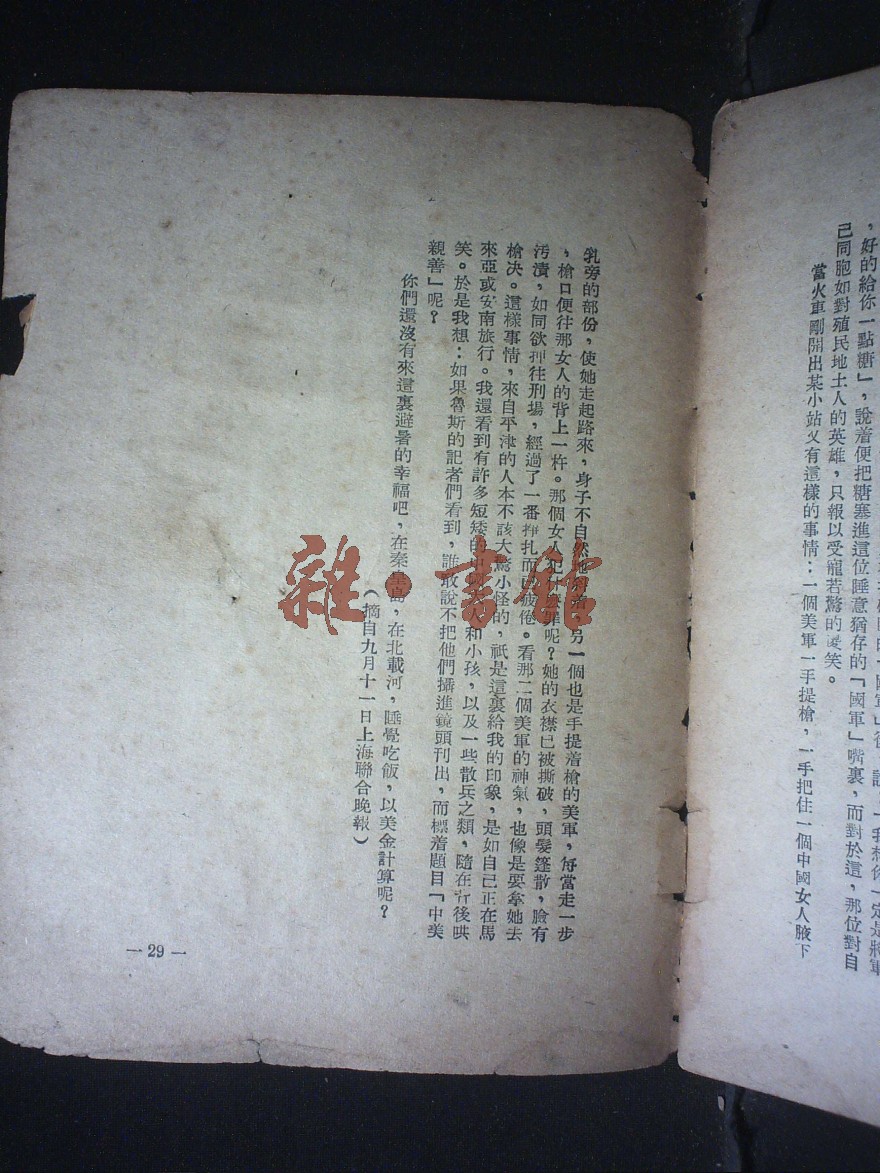 ，好的給你一點糖」，說着便把糖塞進這位睡意猶存的「國軍」嘴裏，而對於這，那位對自
己同胞如對殖民地土人的英雄，只報以受寵若驚的 笑。
當火車剛開出某小站又有這樣的事情：一個美軍一手提槍，一手把住一個中國女人腋下
乳旁的部份，使她走起路來，身子不自然地 着，另一個也是手提着槍的美軍，每當走一步
，槍口便往那女人的背上一杵。那個女人犯什麼罪呢？她的衣襟已被撕破，頭髮篷散，臉有
汚漬，如同欲押往刑場，經過了一番掙扎而已疲倦。看那二個美軍的神氣，也像是要拿她去
槍决。這樣事情，來自平津的人本不該大驚小怪的，祇是這裏給我的印象，是如自己正在馬
來亞或安南旅行。我還看到有許多短矮的 人和小孩，以及一些散兵之類，隨在背後哄
笑。於是我想：如果魯斯的記者們看到，誰敢說不把他們攝進鏡頭刊出，而標着題目「中美
親善」呢？
你們還沒有來這裏避暑的幸福吧，在秦皇島，在北載河，睡覺吃飯，以美金計算呢？
（摘自九月十一日上海聯合晚報）
— 29 —
雜·書館